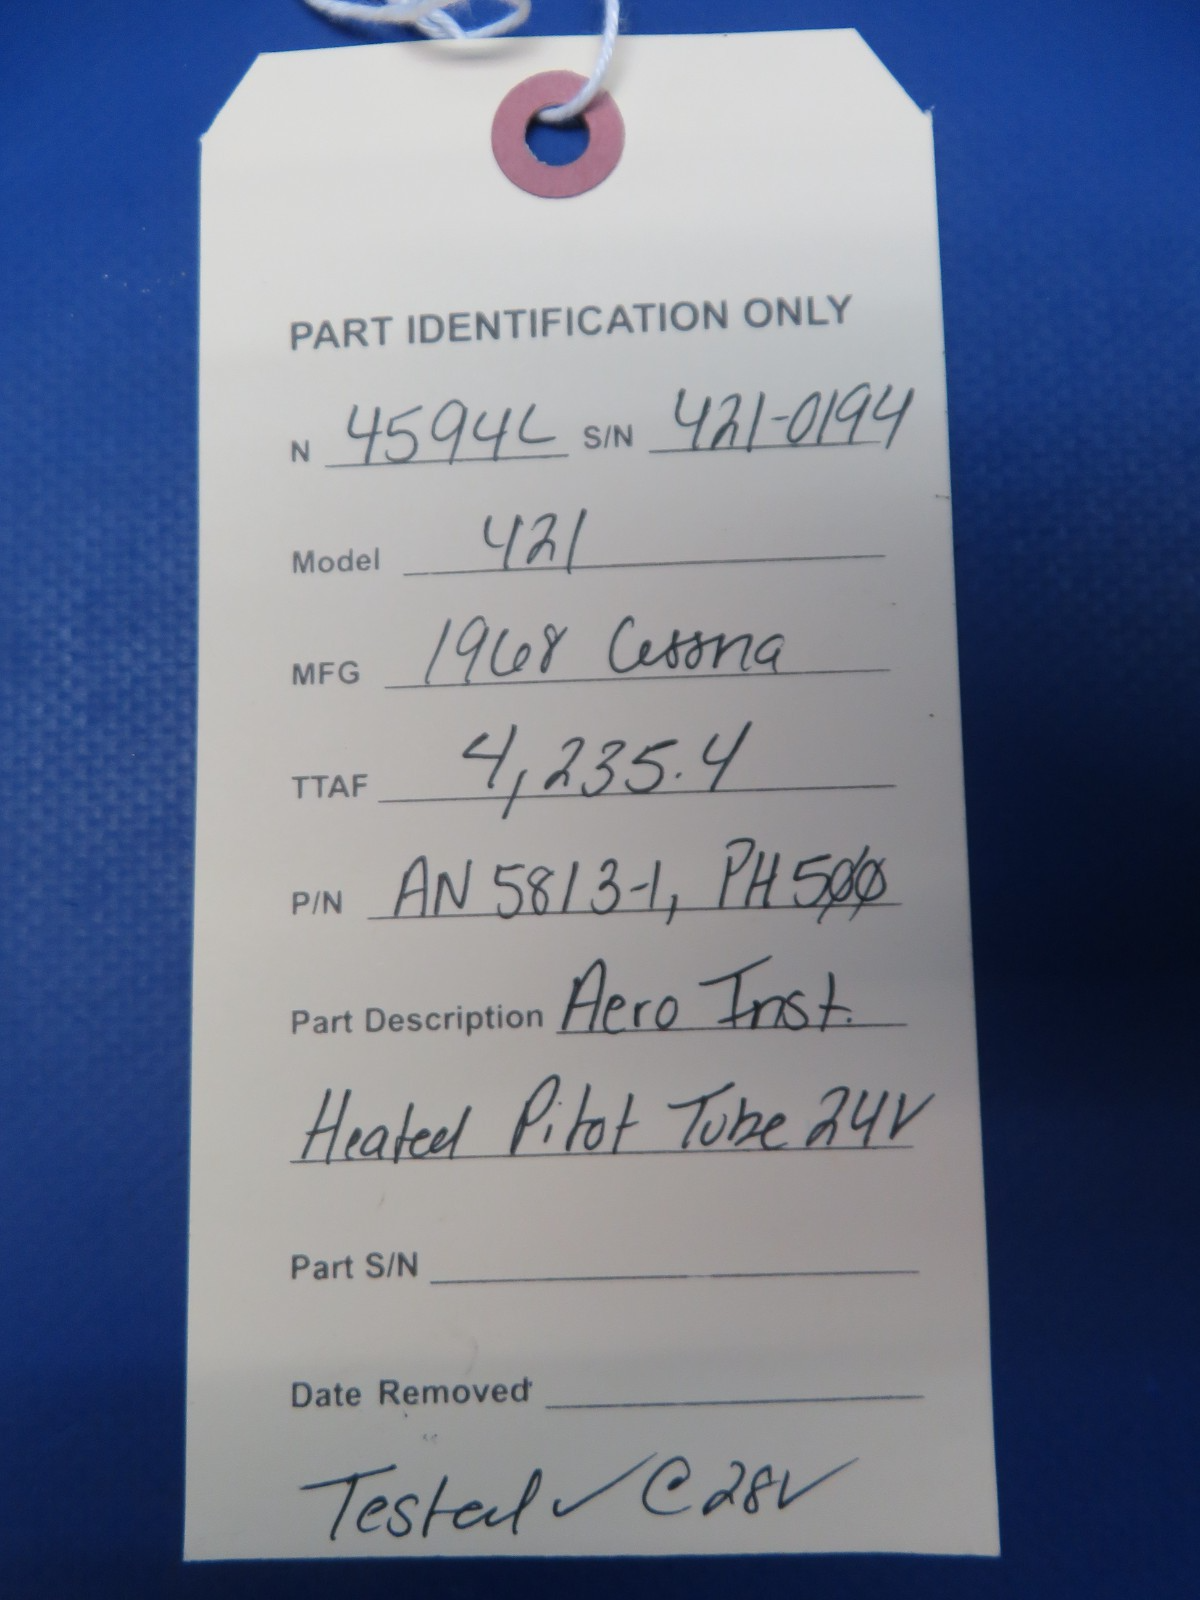 PART IDENTIFICATION ONLY
N 4594L S/N 421-0194
Model 421
MFG 1968 Cessna
TTAF 4,235.4
P/N AN5813-1, PH500
Part Description Aero Inst.
Heated Pitot Tube 24V
Part S/N
Date Removed
Tested ✓ @ 28V